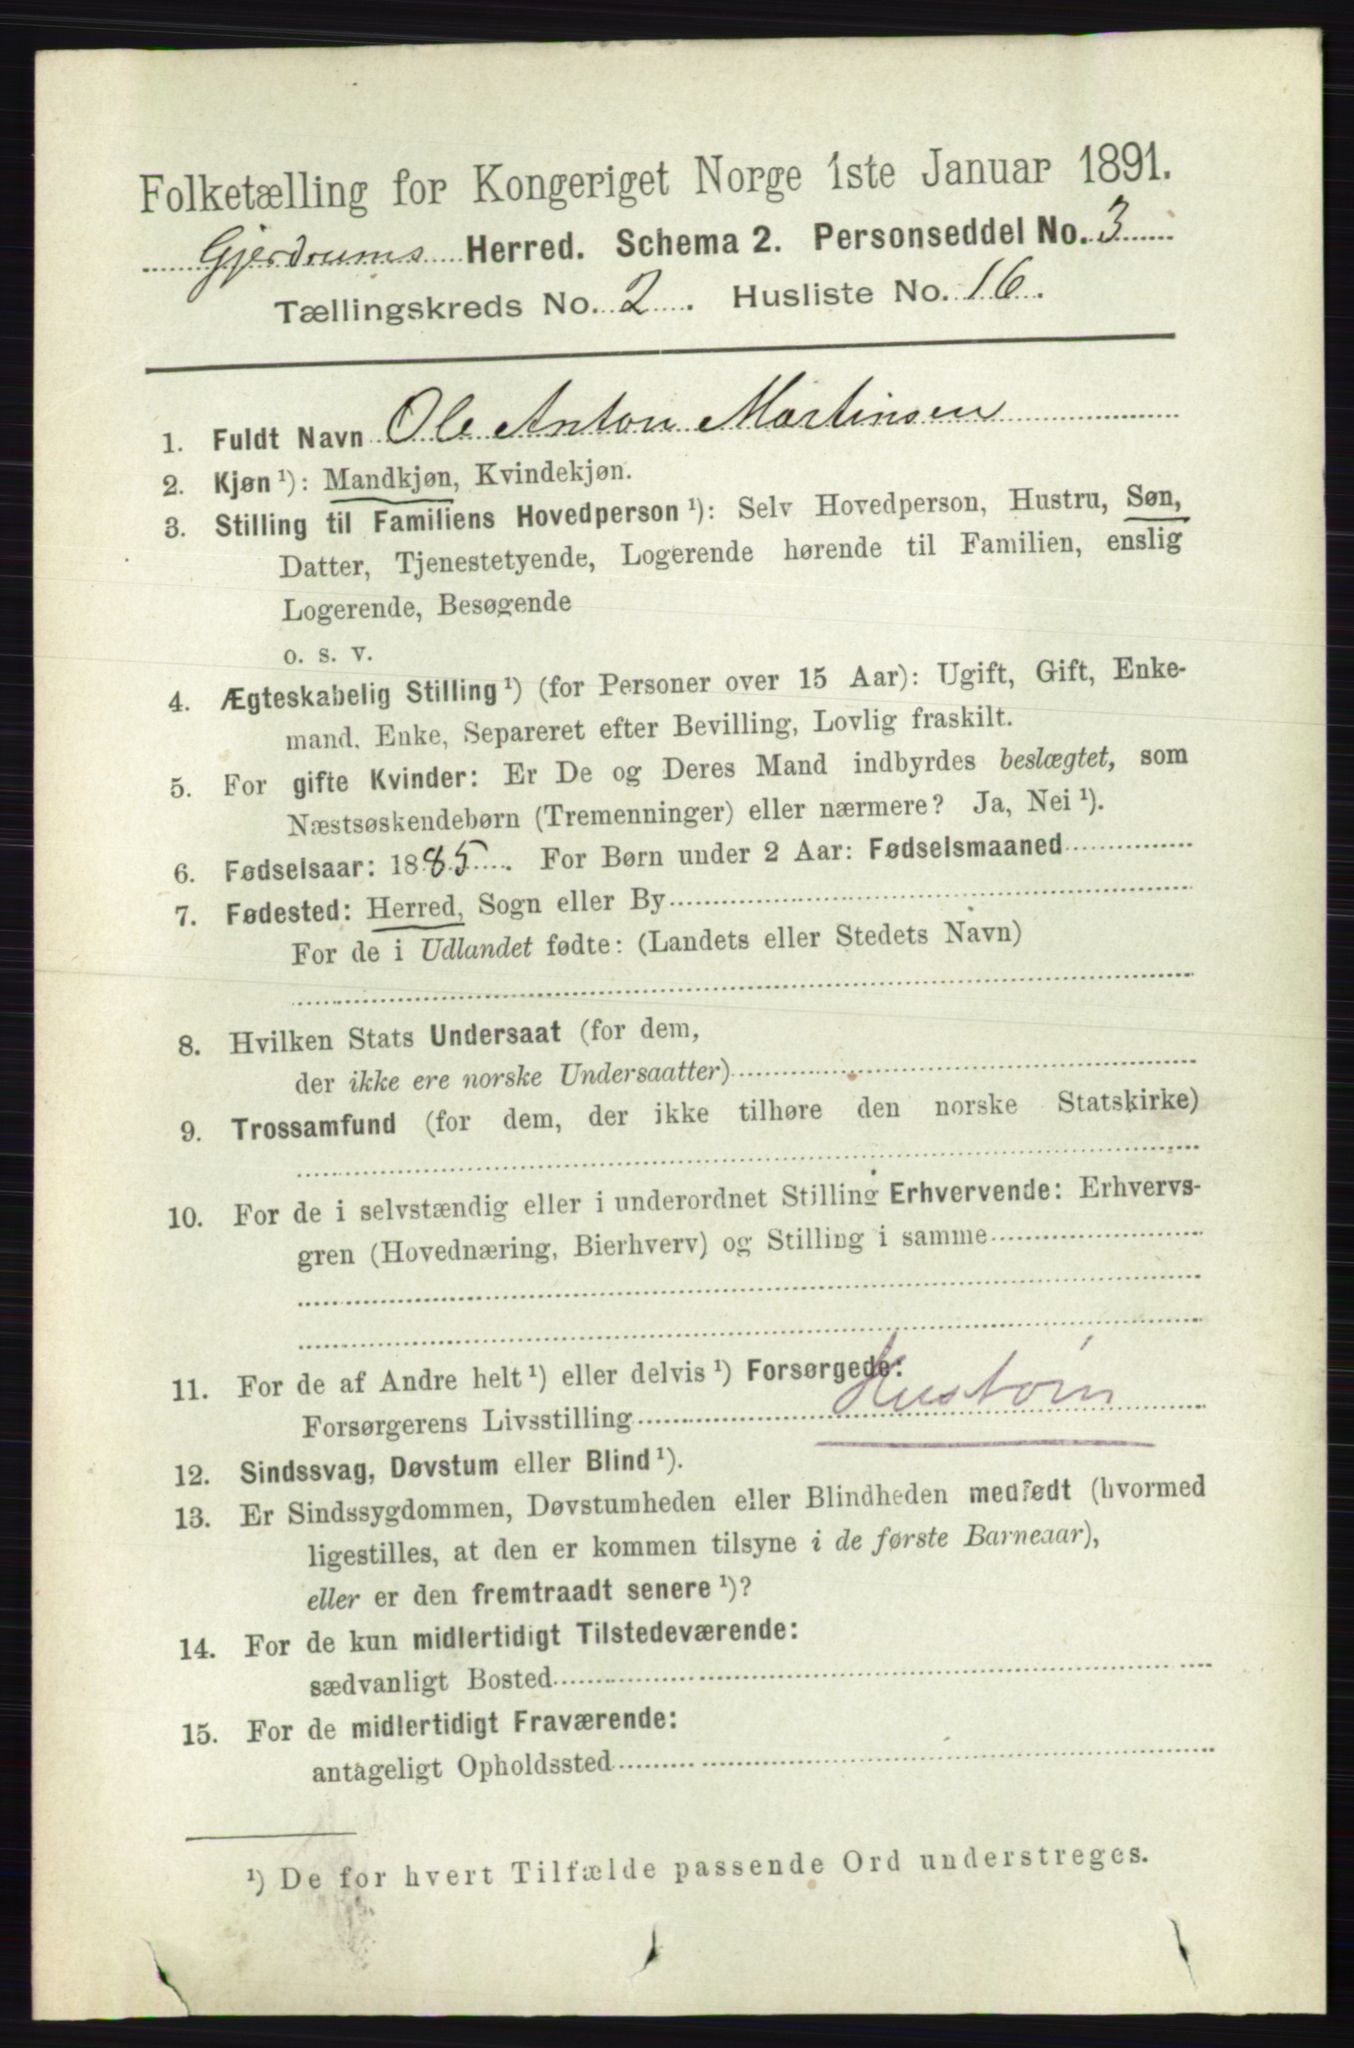 Folketælling for Kongeriget Norge 1ste Januar 1891.
Gjerdrums Herred. Schema 2. Personseddel No. 3
Tællingskreds No. 2. Husliste No. 16.
1. Fuldt Navn Ole Anton Martinsen
2. Kjøn ¹): Mandkjøn, Kvindekjøn.
3. Stilling til Familiens Hovedperson ¹): Selv Hovedperson, Hustru, Søn,
Datter, Tjenestetyende, Logerende hørende til Familien, enslig
Logerende, Besøgende
o. s. v.
4. Ægteskabelig Stilling ¹) (for Personer over 15 Aar): Ugift, Gift, Enke-
mand, Enke, Separeret efter Bevilling, Lovlig fraskilt.
5. For gifte Kvinder: Er De og Deres Mand indbyrdes beslægtet, som
Næstsøskendebørn (Tremenninger) eller nærmere? Ja, Nei ¹).
6. Fødselsaar: 1885. For Børn under 2 Aar: Fødselsmaaned
7. Fødested: Herred, Sogn eller By
For de i Udlandet fødte: (Landets eller Stedets Navn)
8. Hvilken Stats Undersaat (for dem,
der ikke ere norske Undersaatter)
9. Trossamfund (for dem, der ikke tilhøre den norske Statskirke)
10. For de i selvstændig eller i underordnet Stilling Erhvervende: Erhvervs-
gren (Hovednæring, Bierhverv) og Stilling i samme
11. For de af Andre helt ¹) eller delvis ¹) Forsørgede:
Forsørgerens Livsstilling
12. Sindssvag, Døvstum eller Blind ¹).
13. Er Sindssygdommen, Døvstumheden eller Blindheden medfødt (hvormed
ligestilles, at den er kommen tilsyne i de første Barneaar),
eller er den fremtraadt senere ¹)?
14. For de kun midlertidigt Tilstedeværende:
sædvanligt Bosted
15. For de midlertidigt Fraværende:
antageligt Opholdssted
¹) De for hvert Tilfælde passende Ord understreges.